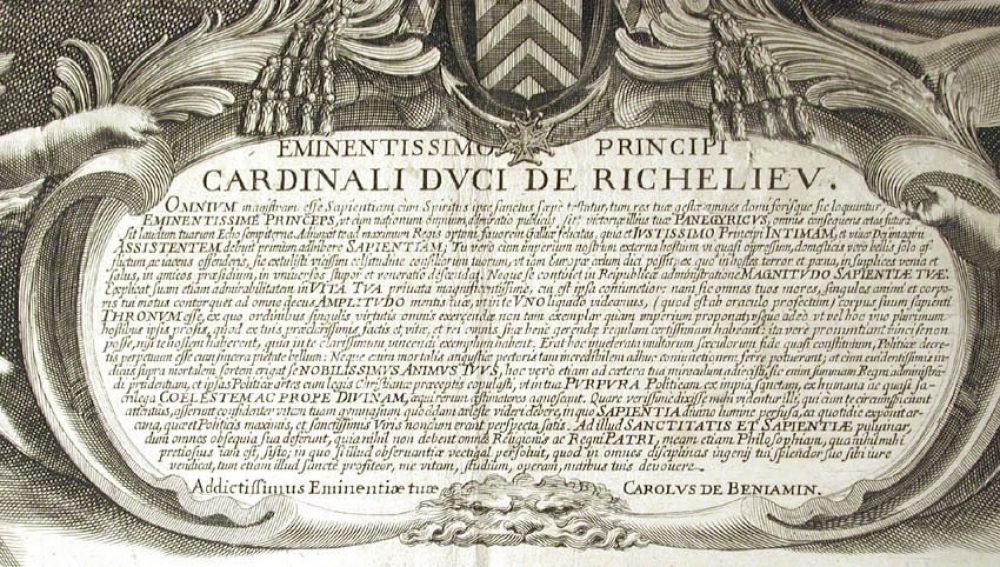 EMINENTISSIMO PRINCIPI
CARDINALI DVCI DE RICHELIEV.
OMNIUM magistram esse Sapientiam cum Spiritus sanctus sæpè testatur, tum res tuæ gestæ omnes domi forisque sic loquuntur,
EMINENTISSIME PRINCEPS, ut cum nationum omnium admiratio publicis, sit victoriis illius tuæ PANEGYRICUS, omnis consequens ætas futura
sit laudum tuarum Echo sempiterna. Adiuvat te ad maximum Regis optimi favorem Galliæ felicitas, quia et IVSTISSIMO Principi INTIMAM, et vivæ Dei imagini
ASSISTENTEM debuit primùm adhibere SAPIENTIAM; Tu verò cùm imperium nostrum externa hostium vi quasi oppressum, domesticis verò bellis solo af-
flictum ac iacens offenderis, sic extulisti altitudine consiliorum tuorum, ut iam Europæ cælum dici possit, ex quo in hostes terror et pœna, in supplices venia et
salus, in amicos præsidium, in universos stupor et veneratio descendat. Neque se continet in Reipublicæ administratione MAGNITVDO SAPIENTIÆ TVÆ.
Explicat suam etiam admirabilitatem in VITA TVA privata magnificentissimè, ea est ipsa coniunctior: nam sic omnes tuos mores, singulos animi et corpo-
ris tui motus contorquet ad omne decus AMPLITVDO mentis tuæ, ut in te VNO liquidò videamus, (quod est ab oraculo profectum) corpus suum sapienti
THRONVM esse, ex quo ordinibus singulis virtutis omnis exercendæ non tam exemplar quàm imperium proponat, usque adeò ut vel hoc uno plurimum
hostibus ipsis prosis, quod ex tuis præclarissimis factis et vitæ, et rei omnis suæ benè gerendæ regulam certissimam habeant: ita verè pronuntiant vinci se non
posse, nisi te hostem haberent, quia in te clarissimum vincendi exemplum habent. Erat hoc inveterata multorum sæculorum fide quasi constitutum, Politicæ decre-
tis perpetuum esse cum sincera pietate bellum: Neque enim mortalis angustiæ pectoris tam incredibilem adhuc coniunctionem ferre potuerunt; at cùm evidentissimis in-
diciis supra mortalem sortem erigat se NOBILISSIMUS ANIMUS TVVS, hoc verò etiam ad cætera tua miracula adiecisti, sic enim summam Regni administran-
di prudentiam, et ipsas Politicæ artes cum legis Christianæ præceptis copulasti, ut in tua PVRPVRA Politicam ex impia sanctam, ex humana ac quasi sa-
crilega COELESTEM AC PROPE DIVINAM, æqui rerum æstimatores agnoscant. Quare verissimè dixisse mihi videntur illi, qui cùm te circumspiciunt
attentiùs, asserunt confidenter vitam tuam gymnasium quoddam cæleste videri debere, in quo SAPIENTIA divino lumine perfusa, ea quotidie exponit ar-
cana, quæ et Politicis maximis, et sanctissimis Viris non cùm erant perspecta satis. Ad illud SANCTITATIS ET SAPIENTIÆ pulvinar,
dum omnes obsequia sua deferunt, quia nihil non debent omnes Religionis ac Regni PATRI, meam etiam Philosophiam, qua nihil mihi
pretiosius iam est, sisto; in quo si illud observantiæ vectigal persolvit, quod in omnes disciplinas ingenij tui splendor suo sibi iure
vendicat, tum etiam illud sanctè profiteor, me vitam, studium, operam, nutibus tuis devovere.
Addictissimus Eminentiæ tuæ CAROLVS DE BENIAMIN.